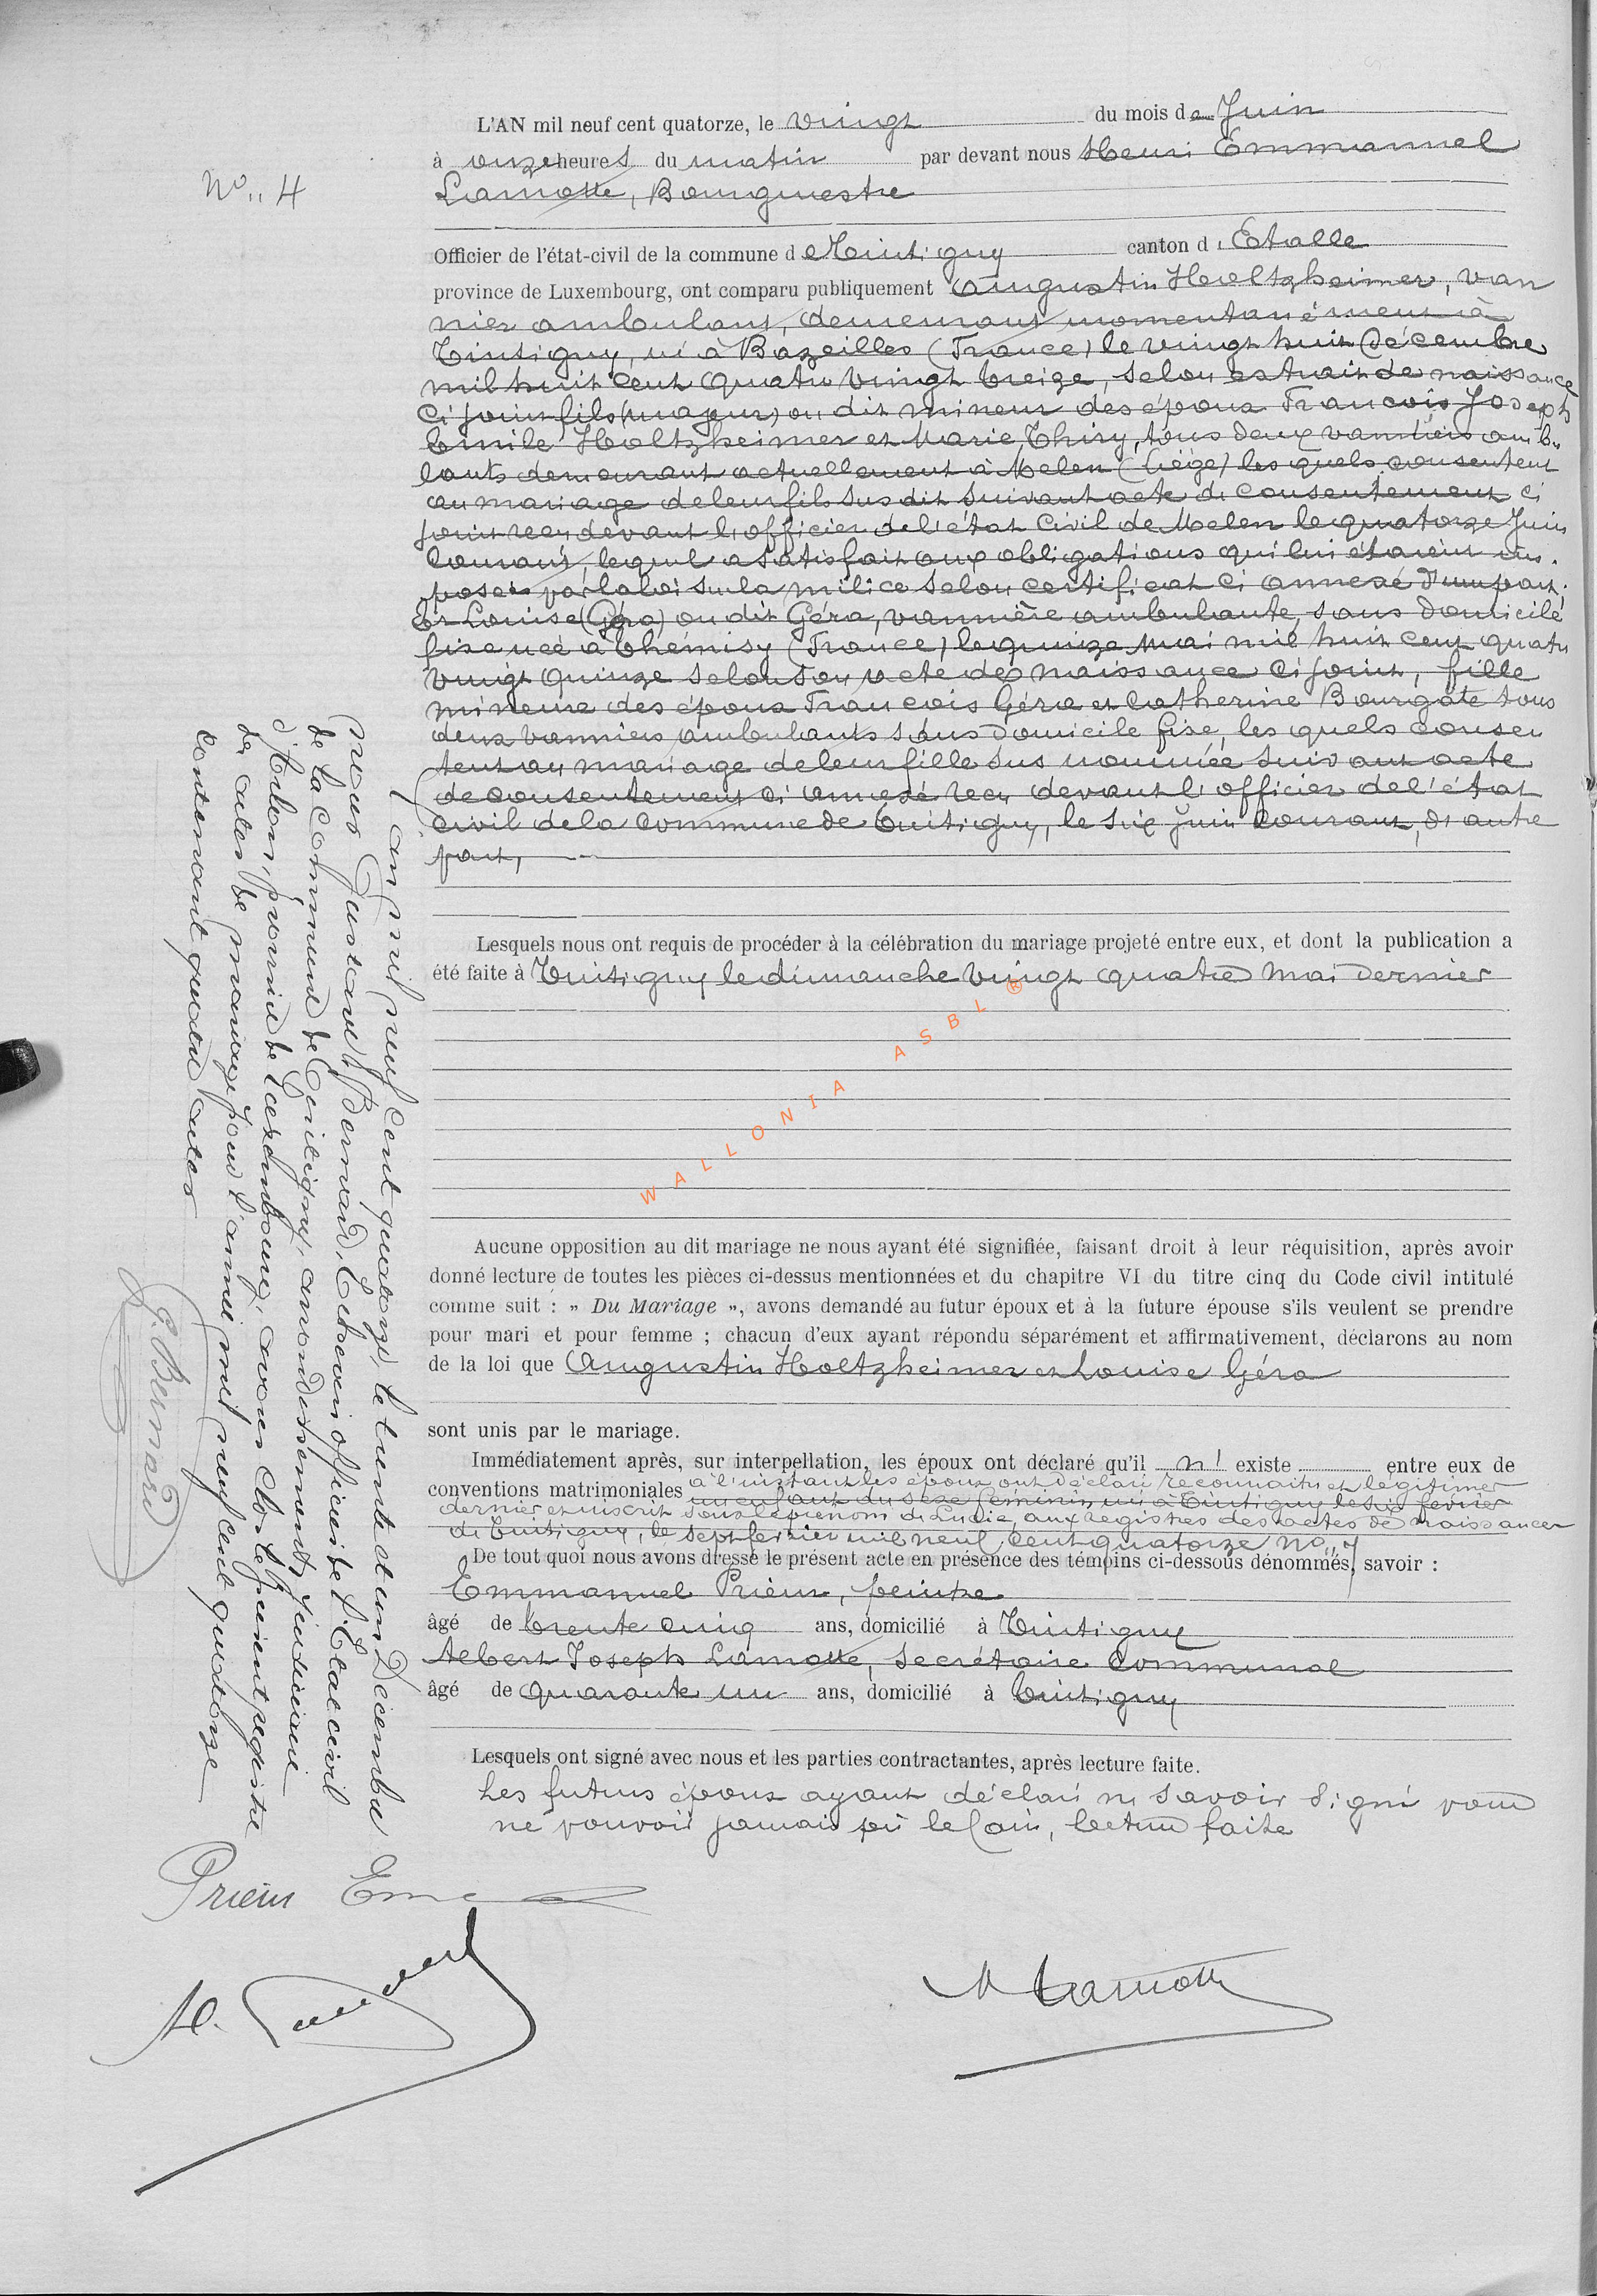 No.. 4
L'AN mil neuf cent quatorze, le vingt du mois de Juin
à onze heures du matin par devant nous Henri Emmanuel
Lamotte, Bourgmestre
Officier de l'état-civil de la commune de Tintigny canton d'Etalle
province de Luxembourg, ont comparu publiquement Augustin Holtzheimer, van
nier ambulant, demeurant momentanément à
Tintigny, né à Bazeilles (France) le vingt huit Décembre
mil huit cent quatre vingt treize, selon extrait de naissance
ci joint fils (majeur) on dit mineur des époux François Joseph
Emile Holtzheimer et Marie Thiry, tous deux vanniers ambu
lants demeurant actuellement à Melen (Liège) les quels consentent
au mariage de leur fils sus dit suivant acte de consentement ci
joint reçu devant l'officier de l'état civil de Melen le quatorze Juin
courant, lequel a satisfait aux obligations qui lui étaient im.
posées par la loi sur la milice selon certificat ci annexé d'une part.
Et Louise (Géra) on dit Géra, vannière ambulante, sans domicile
fixe née à Thémisy (France) le quinze Mai mil huit cent quatre
vingt quinze selon son acte de naissance ci joint, fille
mineure des époux François Géra et Catherine Bourgate tous
deux vanniers ambulants sans domicile fixe, les quels consen
tent au mariage de leur fille sus nommée suivant acte
de consentement ci annexé reçu devant l'officier de l'état
civil de la commune de Tintigny, le six Juin courant, d'autre
part,
Lesquels nous ont requis de procéder à la célébration du mariage projeté entre eux, et dont la publication a
été faite à Tintigny le dimanche vingt quatre Mai dernier
WALLONIA ASBL ®
Aucune opposition au dit mariage ne nous ayant été signifiée, faisant droit à leur réquisition, après avoir
donné lecture de toutes les pièces ci-dessus mentionnées et du chapitre VI du titre cinq du Code civil intitulé
comme suit : « Du Mariage », avons demandé au futur époux et à la future épouse s'ils veulent se prendre
pour mari et pour femme ; chacun d'eux ayant répondu séparément et affirmativement, déclarons au nom
de la loi que Augustin Holtzheimer et Louise Géra
sont unis par le mariage.
Immédiatement après, sur interpellation, les époux ont déclaré qu'il n' existe entre eux de
conventions matrimoniales à l'instant les époux ont déclaré reconnaître et légitimer
un enfant du sexe féminin, né à Tintigny le six février
dernier et inscrit sous le prénom de Lucie, aux registres des actes de naissances
de Tintigny, le sept février mil neuf cent quatorze No.. 7
De tout quoi nous avons dressé le présent acte en présence des témoins ci-dessous dénommés, savoir :
Emmanuel Prieur, peintre
âgé de trente cinq ans, domicilié à Tintigny
Albert Joseph Lamotte, Secrétaire Communal
âgé de quarante un ans, domicilié à Tintigny
Lesquels ont signé avec nous et les parties contractantes, après lecture faite.
Les futurs époux ayant déclaré ne savoir signé pour
ne pouvoir jamais pû le fair, lecture faite
Prieur Em
Al. Lamotte
H Lamotte
L'an mil neuf cent quatorze, le trente et un Décembre
nous Gustave Bernard, Echevin officier de l'Etat civil
de la Commune de Tintigny, arrondissement judiciaire
d'Arlon, province de Luxembourg, avons clos le présent registre
des actes de mariage pour l'année mil neuf cent quatorze
contenant quatre actes
G. Bernard